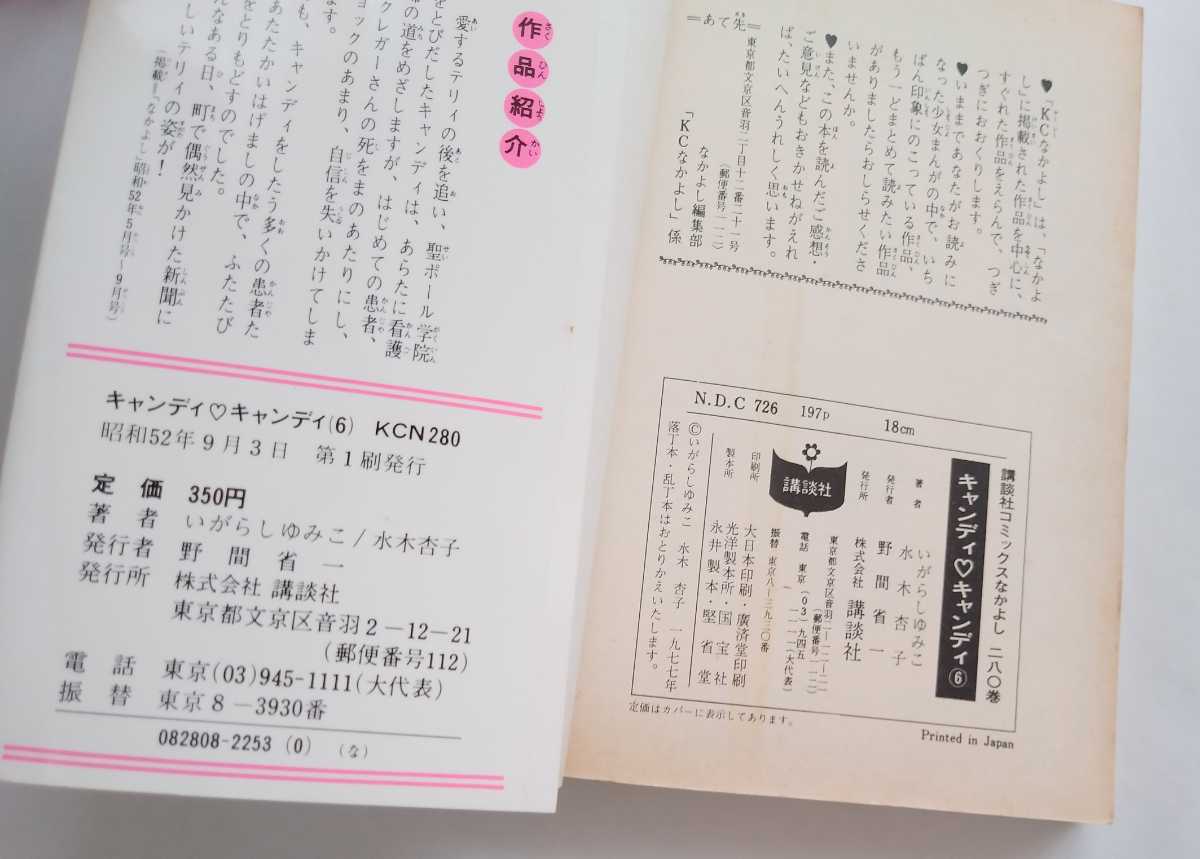 作品紹介
愛するテリィの後を追い、聖ポール学院
をとびだしたキャンディは、あらたに看護
の道をめざしますが、はじめての患者、
クレガーさんの死をまのあたりにし、
ョックのあまり、自信を失いかけてしま
ます。
も、キャンディをしたう多くの患者た
あたたかいはげましの中で、ふたたび
をとりもどすのでした。
んなある日、町で偶然見かけた新聞に
しいテリィの姿が！
(掲載=「なかよし」昭和52年5月号～9月号)
キャンディ♡キャンディ(6) KCN280
昭和52年9月3日 第1刷発行
定価 350円
著者 いがらしゆみこ/水木杏子
発行者 野間省一
発行所 株式会社 講談社
東京都文京区音羽2－12－21
(郵便番号112)
電話 東京(03)945-1111(大代表)
振替 東京8－3930番
082808-2253 (0) (な)
♥「KCなかよし」は、「なかよ
し」に掲載された作品を中心に、
すぐれた作品をえらんで、つぎ
つぎにおおくりします。
♥いままであなたがお読みに
なった少女まんがの中で、いち
ばん印象にのこっている作品、
もう一どまとめて読みたい作品
がありましたらおしらせくださ
いませんか。
♥また、この本を読んだご感想、
ご意見などもおきかせねがえれ
ば、たいへんうれしく思います。
=あて先=
東京都文京区音羽二丁目十二番二十一号
(郵便番号一一二)
なかよし編集部
「KCなかよし」係
N.D.C 726 197p 18cm
講談社コミックスなかよし 二八〇巻
キャンディ♡キャンディ⑥
著者 いがらしゆみこ
水木杏子
発行者 野間省一
発行所 株式会社 講談社
東京都文京区音羽二－一二－二一
(郵便番号一一二)
電話 東京(03)九四五
一一一一(大代表)
振替 東京八－三九三〇番
講談社
印刷所 大日本印刷・廣済堂印刷
製本所 光洋製本所・国宝社
永井製本・堅省堂
©いがらしゆみこ 水木杏子 一九七七年
落丁本・乱丁本はおとりかえいたします。
定価はカバーに表示してあります。
Printed in Japan